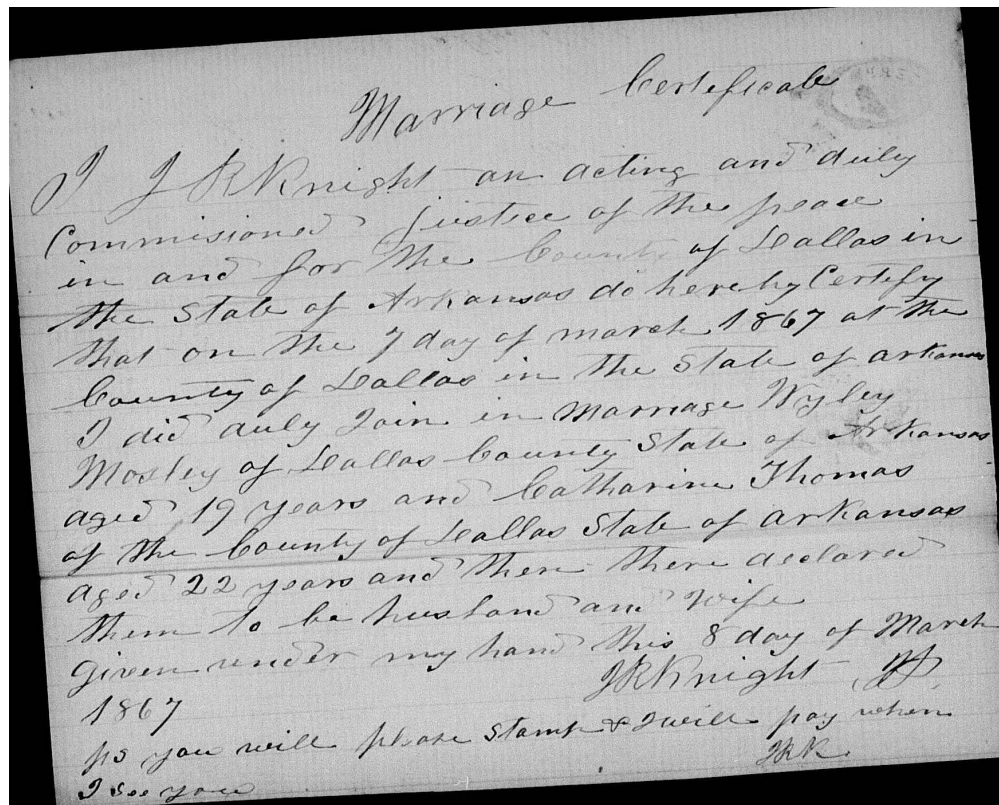 Marriage Certificate
I J R Knight an acting and duly
Commisioned justice of the peace
in and for the County of Dallas in
the State of Arkansas do hereby Certify
that on the 7 day of march 1867 at the
County of Dallas in the State of arkansas
I did duly Join in marriage Wyley
Mosley of Dallas County State of Arkansas
aged 19 years and Catharine Thomas
of the County of Dallas State of arkansas
aged 22 years and then there declared
them to be husband and Wife
given under my hand this 8 day of March
1867 JRKnight JP
ps you will please stamp & I will pay when
I see you JRK